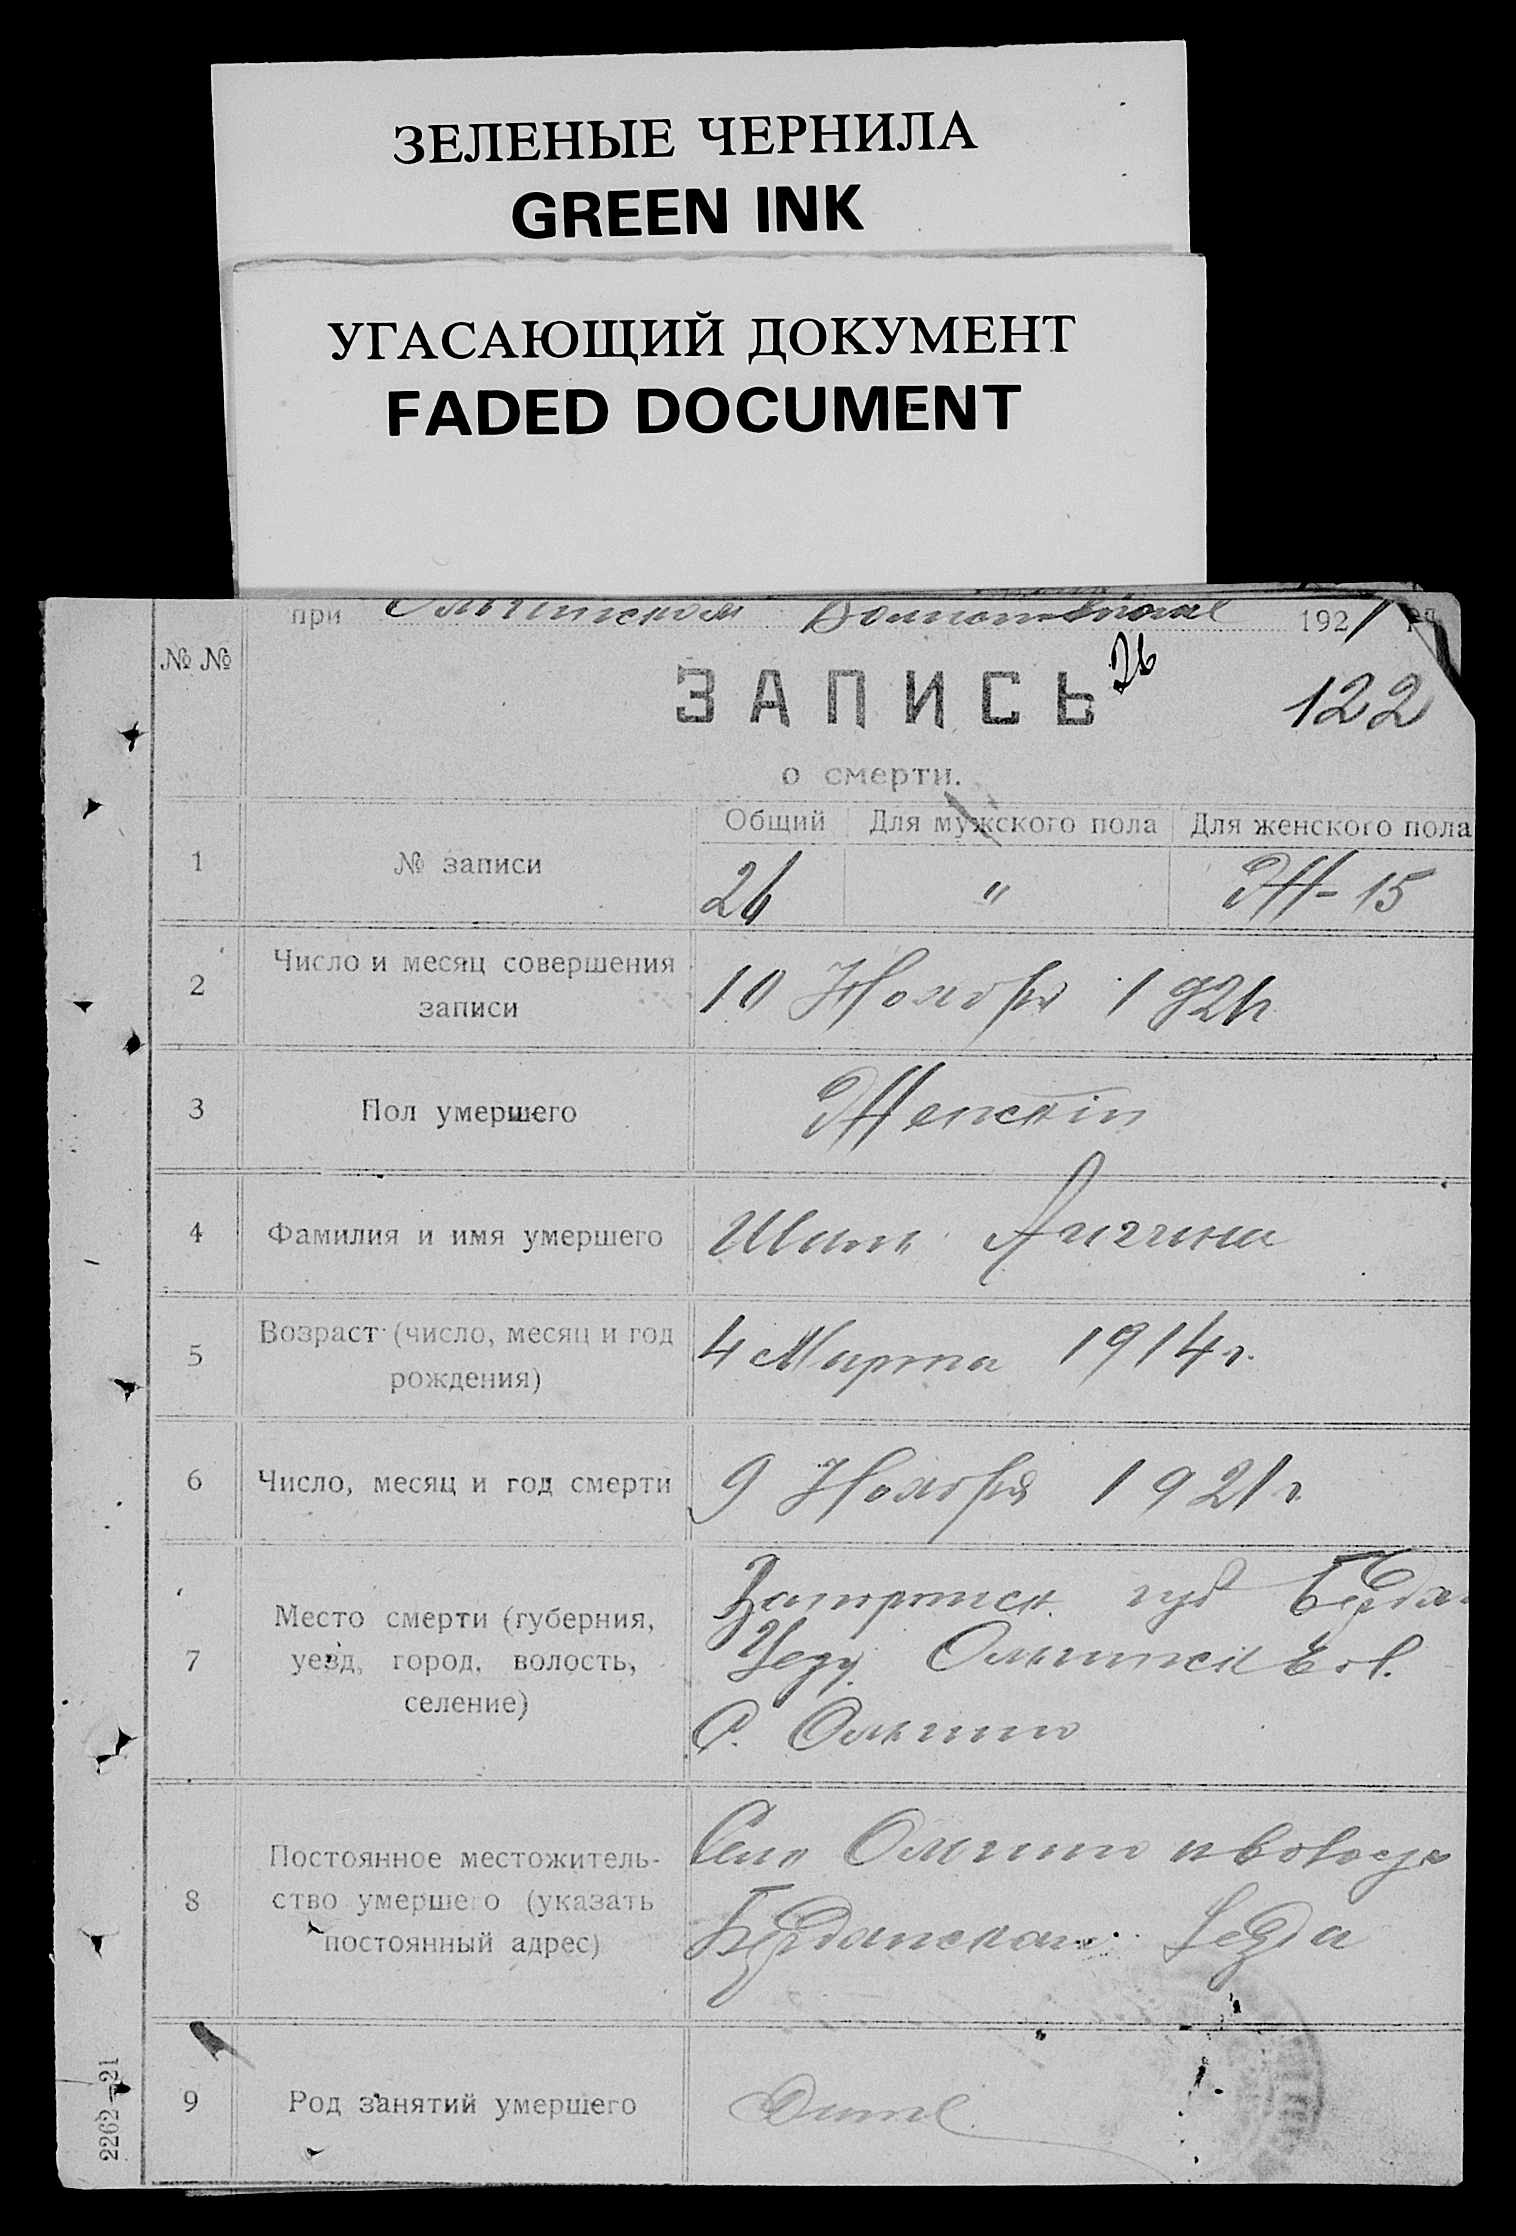 ЗЕЛЕНЫЕ ЧЕРНИЛА
GREEN INK
УГАСАЮЩИЙ ДОКУМЕНТ
FADED DOCUMENT
при Ольгинском 1921
№ №
ЗАПИСЬ 26
122
о смерти.
Общий Для мужского пола Для женского пола
1 № записи 26 " Ж-15
2 Число и месяц совершения
записи
10 Ноября 1921г
3 Пол умершего Женскiй
4 Фамилия и имя умершего
5 Возраст (число, месяц и год
рождения)
4 Марта 1914г.
6 Число, месяц и год смерти 9 Ноября 1921г.
7 Место смерти (губерния,
уезд, город, волость,
селение)
Запорожск губ Бердян
Уезд. Ольгинск Вол.
С. Ольгино
8 Постоянное местожитель-
ство умершего (указать
постоянный адрес)
Село Ольгино
Бердянскаго Уезда
9 Род занятий умершего
2262—21